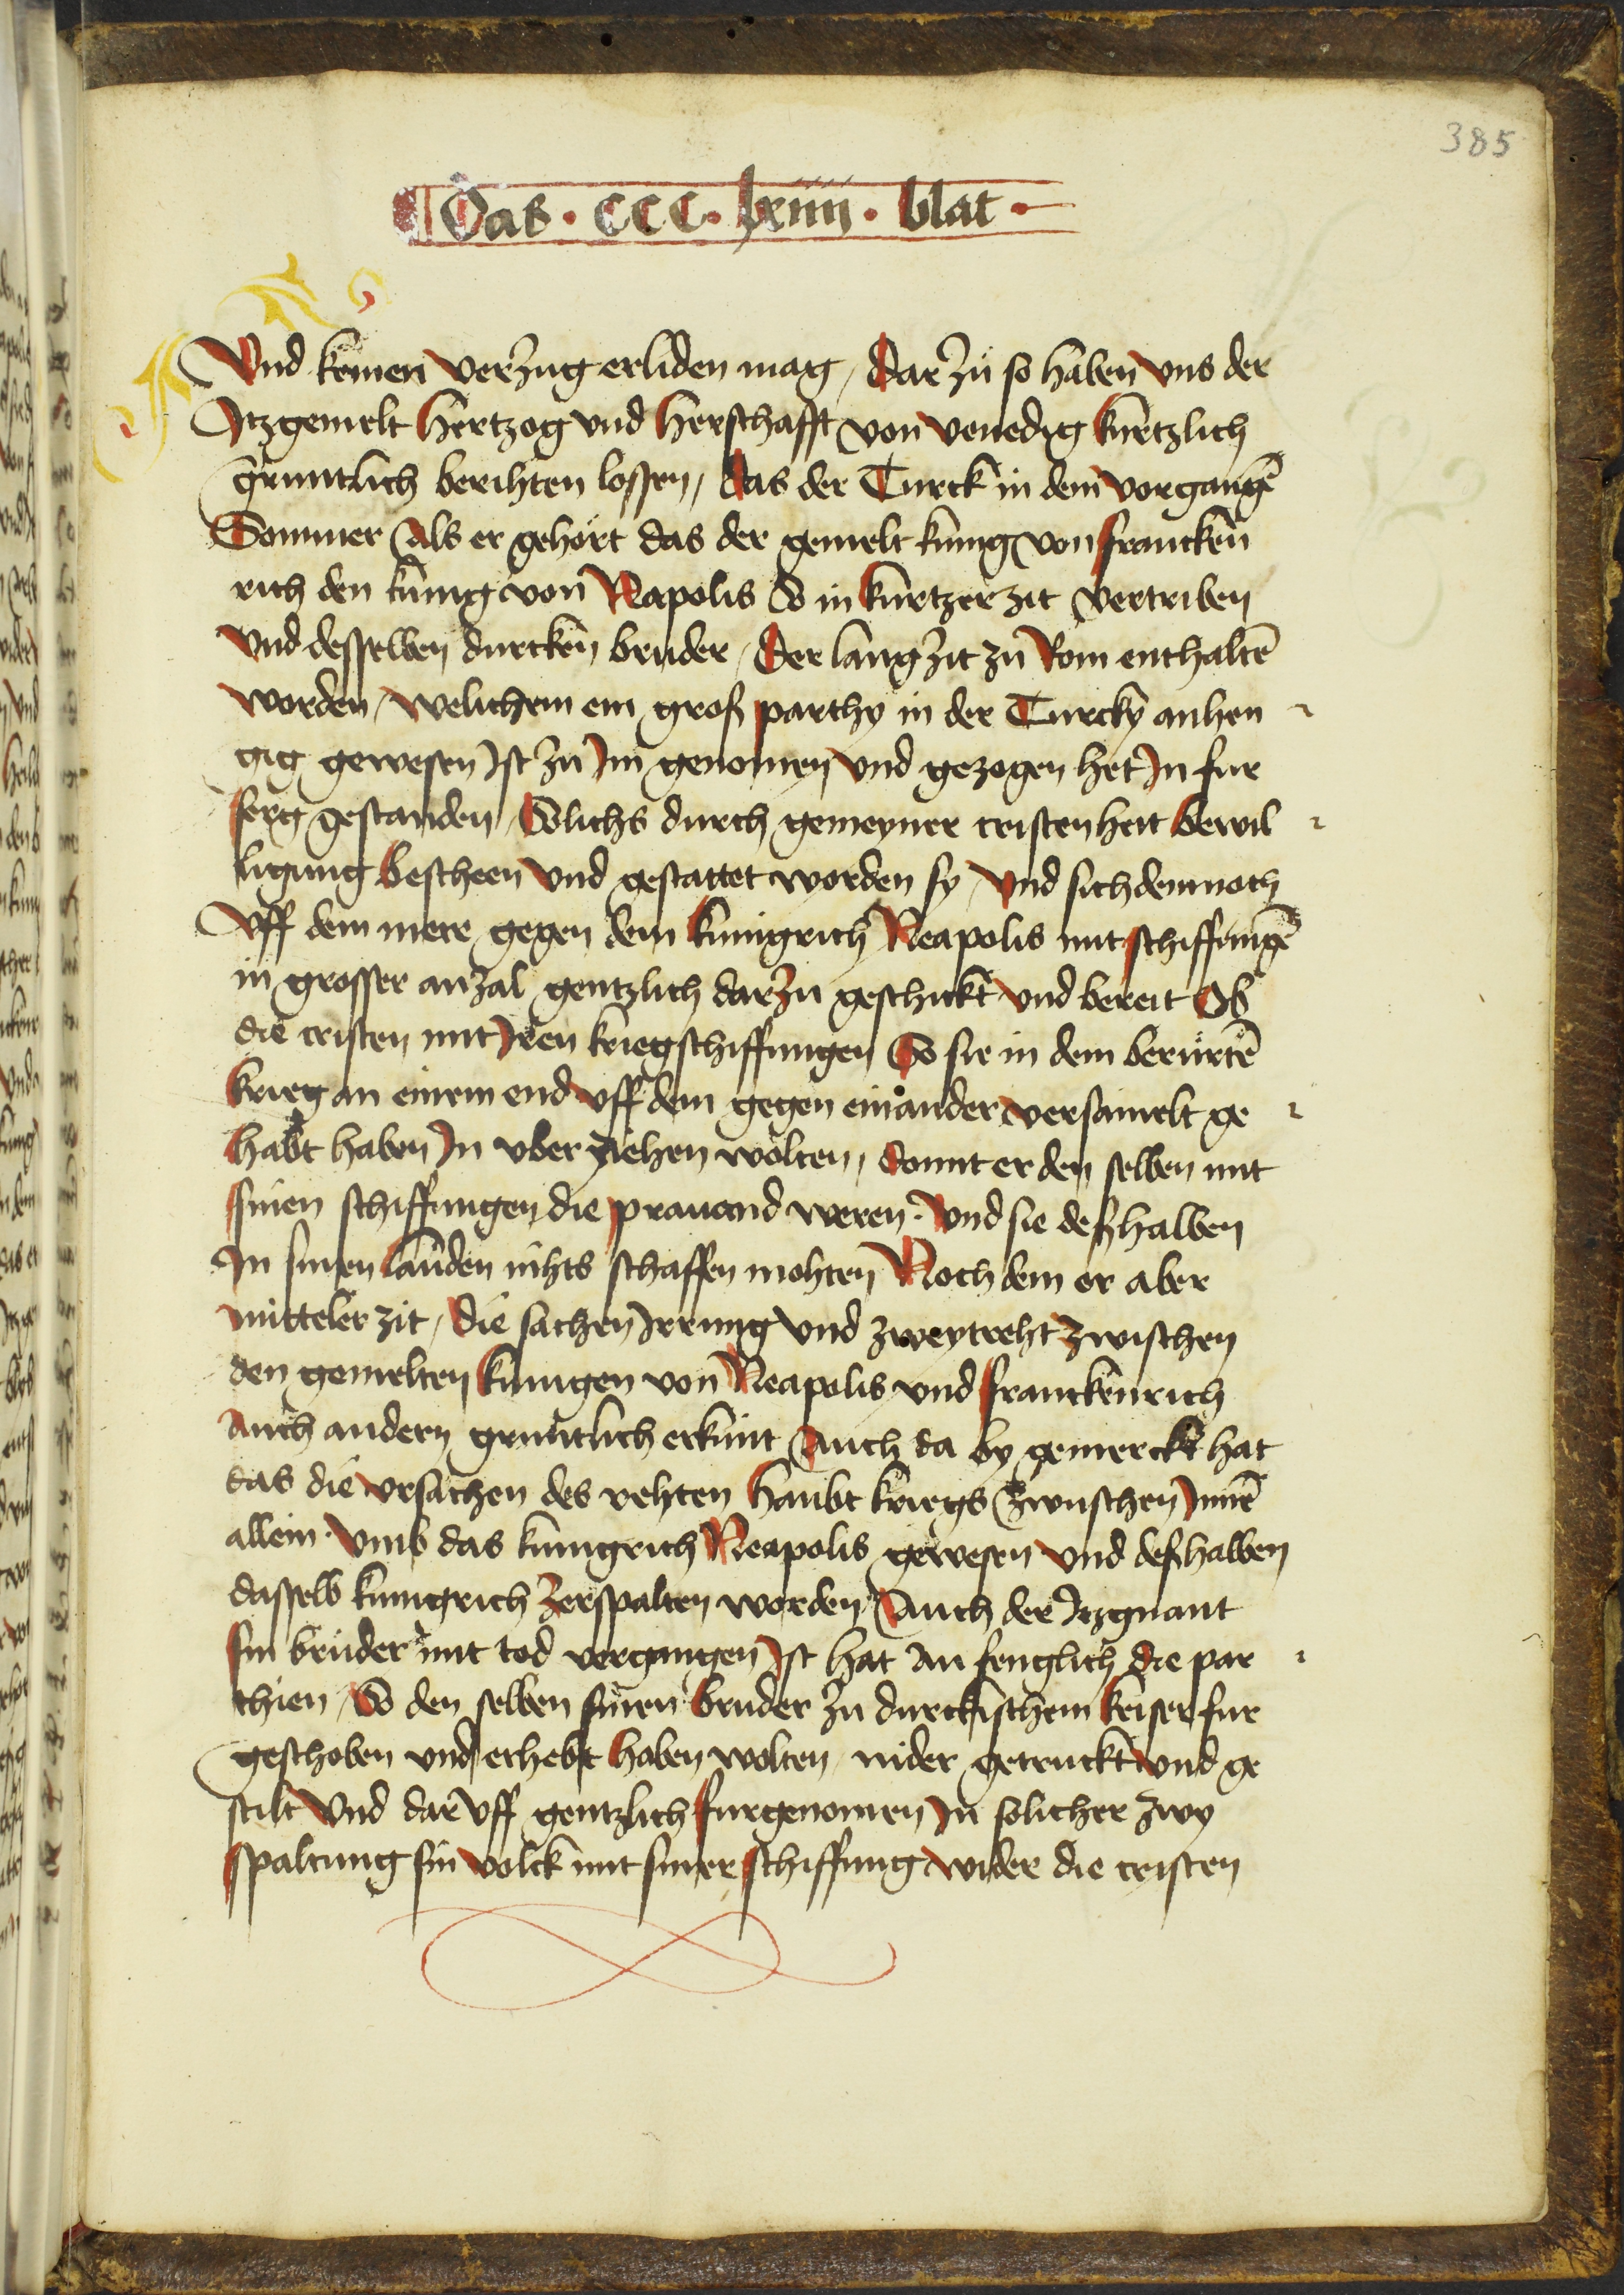 385
Das · CCC · lxiiii · blat ·
Vnd keinen verzug erliden mag / Dar zu so haben vns der
Itzgemelt Hertzog vnd Herschafft von venedig kurtzlich
gruntlich berihten lossen / das der Turck in dem vorgangē
Sommer Als er gehort das der gemelt kunig von francken
rich den kunig von Napolis So in kurtzer zit vertriben
vnd desselben durcken bruder / Der lang zit zu Rom enthaltē
worden / welichem ein groß parthy in der Turcky anhen
gig gewesen Ist zu Im genomen vnd gezogen het In fur
serg gestanden / Solichs durch gemeyner cristenheit bewil
ligung bescheen vnd gestattet worden sy / vnd sich demnoch
vff dem mere gegen dem kunigrich Neapolis mit schiffungē
in grosser anzal gentzlich darzu geschickt vnd bereit Ob
die cristen mit Iren kriegschiffungen So sie in dem berurtē
krieg an einem end vff dem gegen einander versamelt ge
habt haben In vber ziehen wolten / domit er den selben mit
sinen schiffungen die prauand weren · Vnd sie deßhalben
In sinen landen nihts schaffen mohten Noch dem er aber
mitteler zit / die sachen Irrung vnd zweytreht zwischen
den gemelten kunigen von Neapolis vnd franckenrich
Auch andern gruntlich erkunt Auch da by gemerckt hat
das die vrsachen des rehten haubt kriegs zwuschen Inē
allein · vmb das kunigrich Neapolis gewesen vnd deßhalben
dasselb kunigrich zerspalten worden / Auch der Itzgnant
sin bruder mit tod vergangen Ist hat an fenglich die par
thien / So den selben sinen bruder zu durckischem keiser fur
geschoben vnd erhebt haben wolten / nider getruckt vnd ge
stilt Vnd dar vff gentzlich furgenomen In solicher zwy
spaltung sin volck mit siner schiffung wider die cristen